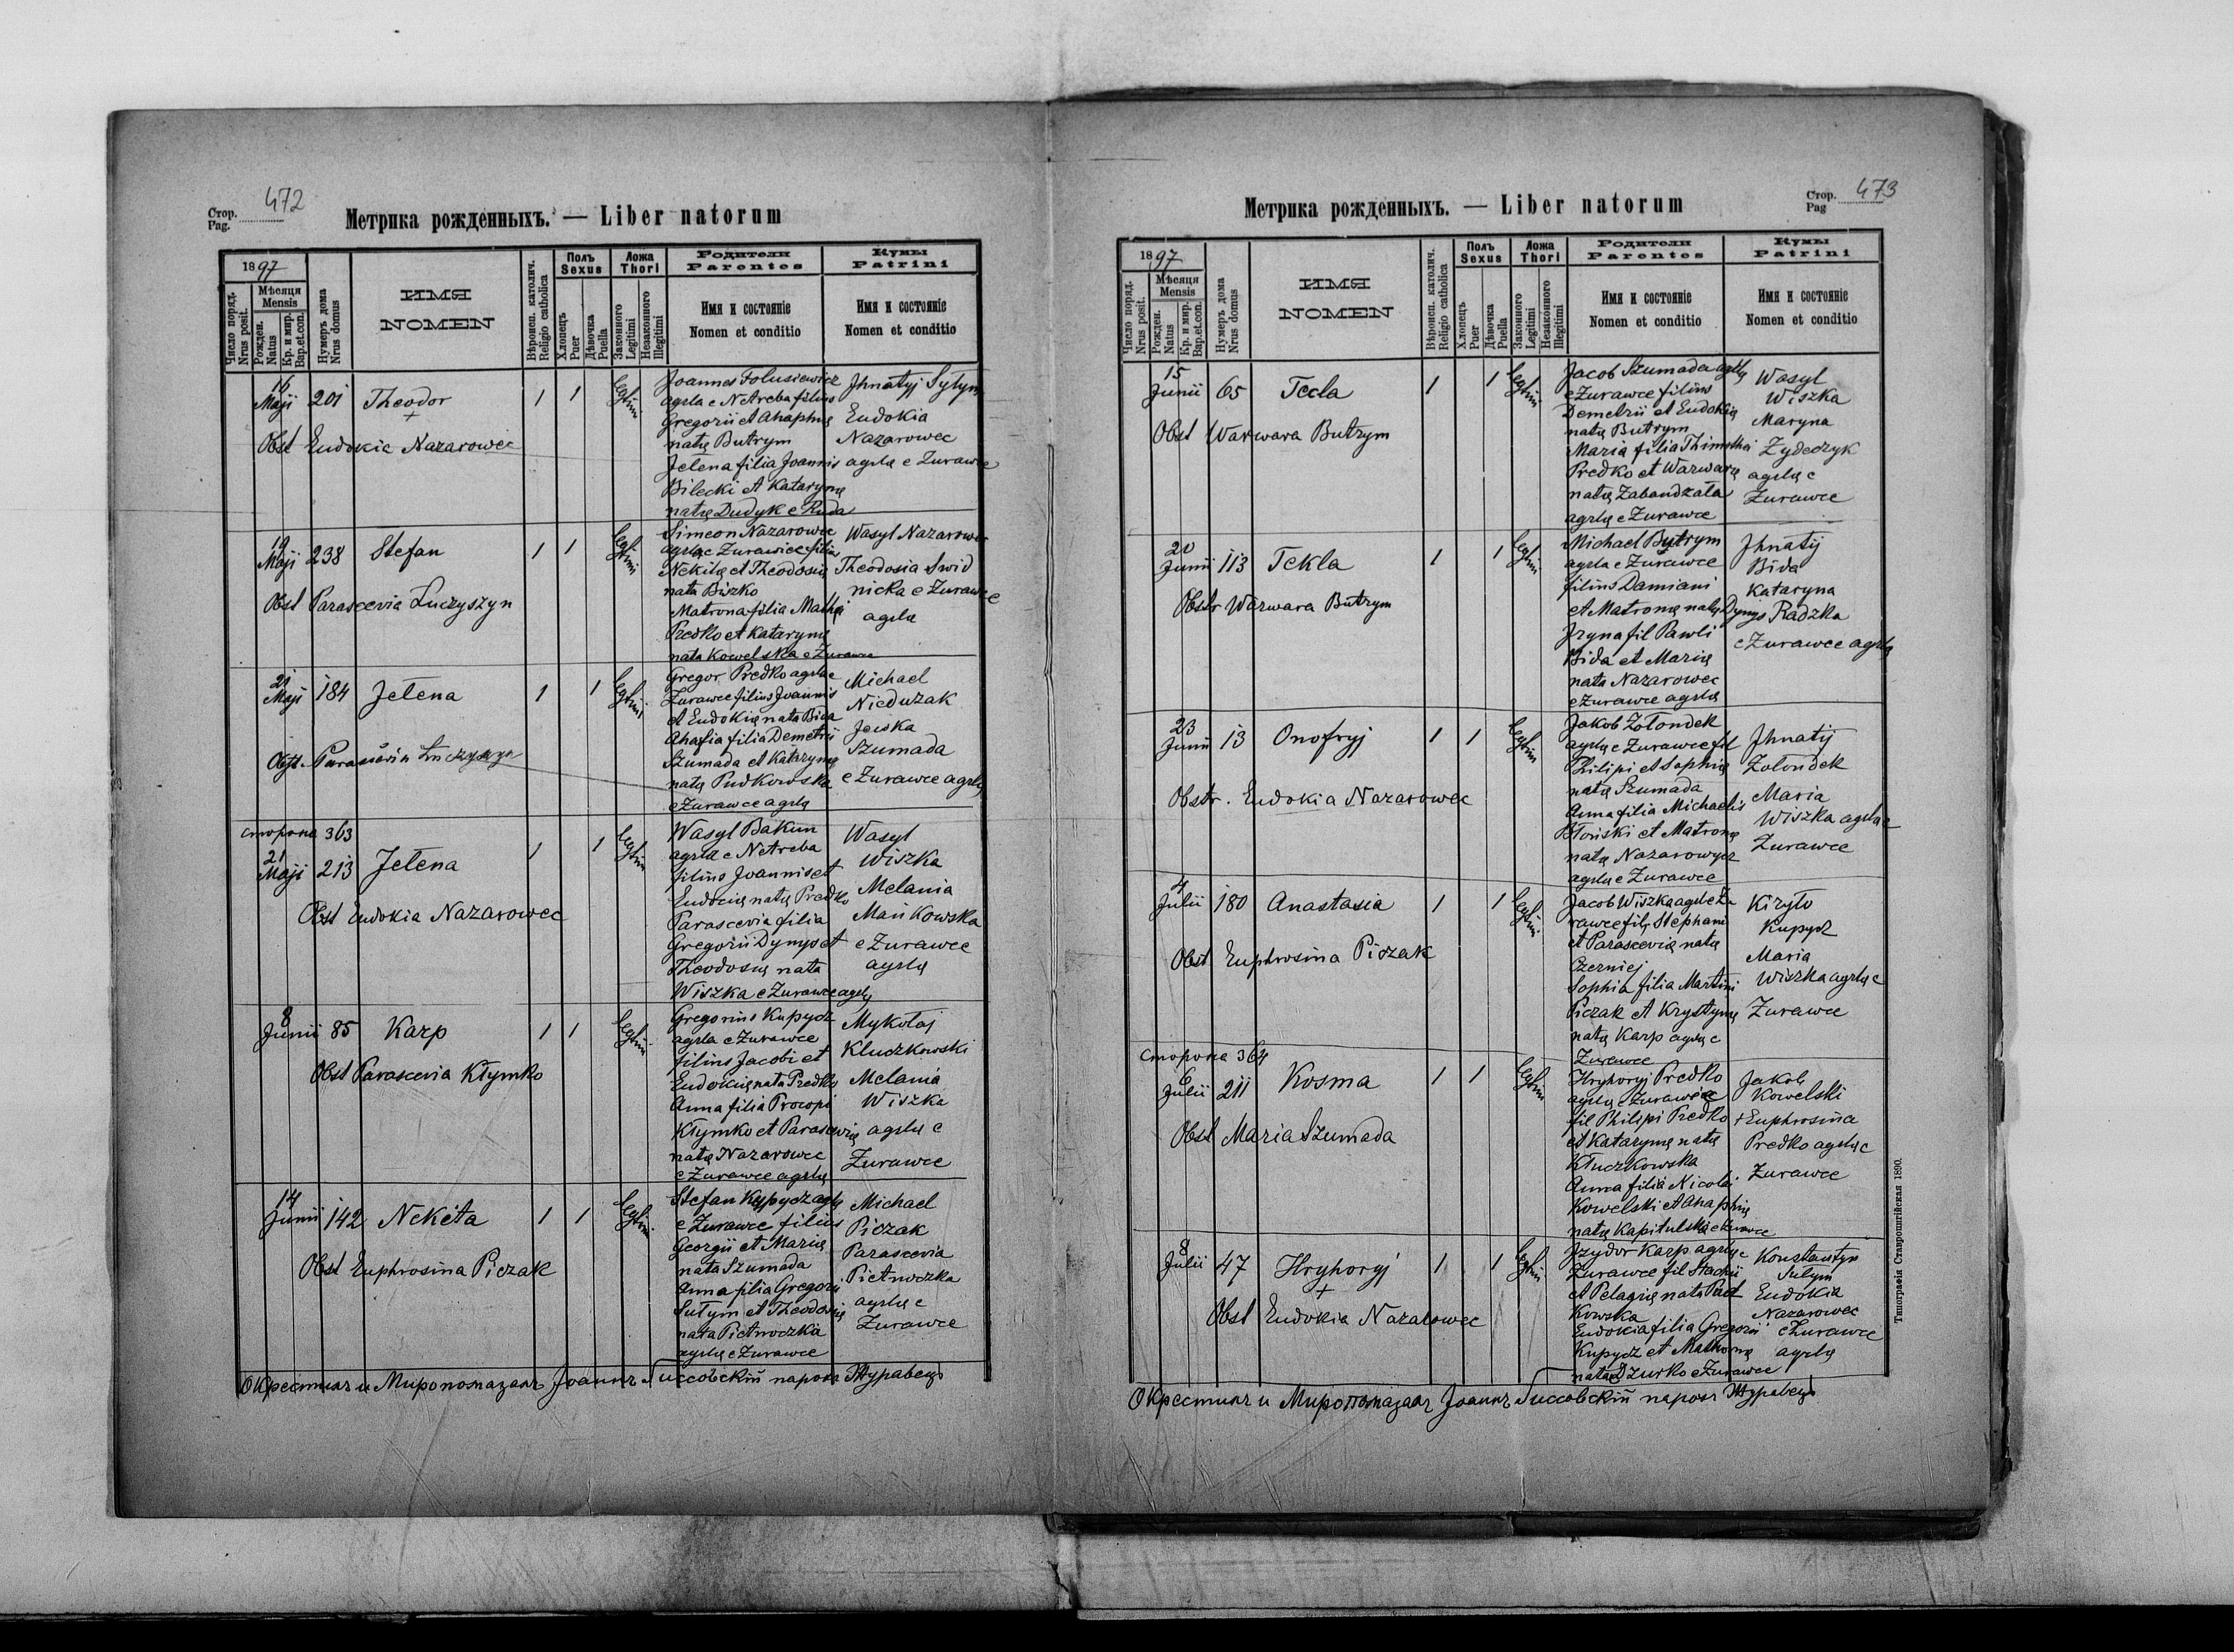 Стор.
Pag. 472
Метрика рожденныхъ. — Liber natorum
1897
Число поряд.
Nrus posit.
Мѣсяця
Mensis
Рожден.
Natus
Кр. и мир.
Bap.et.con.
Нумеръ дома
Nrus domus
ИМЯ
NOMEN
Вѣроисп. католич.
Religio catholica
Полъ
Sexus
Хлопецъ
Puer
Дѣвочка
Puella
Ложа
Thori
Законного
Legitimi
Незаконного
Illegitimi
Родители
Parentes
Имя и состояніе
Nomen et conditio
Кумы
Patrini
Имя и состояніе
Nomen et conditio
16
Maji 201 Theodor 1 1
Obst Eudokia Nazarowec
Joannes Folusiewicz
agrla e Netreba filius
Gregorii et Ahaphię
natę Butrym
Jelena filia Joannis
Bilecki et Katarynę
natę Dudyk e Ruda
Jhnatyj Sytym
Eudokia
Nazarowec
agrlę e Zurawce
19
Maji 238 Stefan 1 1
Obst Parascevia Łuczyszyn
Simeon Nazarowec
agrla e Zurawice filius
Nekitę et Theodosię
nata Biszko
Matrona filia
Predko et Katarynę
nata Kowelska e Zurawce
Wasyl Nazarowec
Theodosia Swid
nicka e Zurawce
agrlę
21
Maji 184 Jelena 1 1
Obst. Parascevia Łuczyszyn
Gregor Predko agrla e
Zurawce filius Joannis
et Eudokię nata Bida
Ahafia filia Demetrii
Szumada et Katarynę
natę Pudkowska
e Zurawce agrlę
Michael
Nieduzak
Jewka
Szumada
e Zurawce agrlę
сторона 363
21
Maji 213 Jelena 1 1
Obst Eudokia Nazarowec
Wasyl Bakun
agrla e Netreba
filius Joannis et
Eudocię natę Predko
Parascevia filia
Gregorii Dymyo et
Theodosię nata
Wiszka e Zurawce agrlę
Wasyl
Wiszka
Melania
Mańkowska
e Zurawce
agrlę
8
Junii 85 Karp 1 1
Obst Parascevia Kłymko
Gregorius Kupycz
agrla e Zurawce
filius Jacobi et
Eudokię nata Predko
Anna filia Procopi
Kłymko et Parascevię
natę Nazarowec
e Zurawce agrlę
Mykołaj
Kluczkowski
Melania
Wiszka
agrlę e
Zurawce
14
Junii 142 Nekita 1 1
Obst Euphrosina Piczak
Stefan Kupycz agrlę
e Zurawce filius
Georgii et Marię
nata Szumada
Anna filia Gregorii
Sutym et Theodosię
nata Pietnoczka
agrlę e Zurawce
Michael
Piczak
Parascevia
Pietnoczka
agrlę e
Zurawce
Окрестилъ и Миропомазалъ Іоаннъ парохъ Журавецъ
Стор.
Pag 473
Метрика рожденныхъ. — Liber natorum
1897
Число поряд.
Nrus posit.
Мѣсяця
Mensis
Рожден.
Natus
Кр. и мир.
Bap.et.con.
Нумеръ дома
Nrus domus
ИМЯ
NOMEN
Вѣроисп. католич.
Religio catholica
Полъ
Sexus
Хлопецъ
Puer
Дѣвочка
Puella
Ложа
Thori
Законного
Legitimi
Незаконного
Illegitimi
Родители
Parentes
Имя и состояніе
Nomen et conditio
Кумы
Patrini
Имя и состояніе
Nomen et conditio
15
Junii 65 Tecla 1 1
Obst Warwara Butrym
Jacob Szumada agrlę
e Zurawce filius
Demetrii et Eudokię
natę Butrym
Maria filia Thimothei
Predko et Warwarę
natę Zabandzała
agrlę e Zurawce
Wasyl
Wiszka
Maryna
Zydeczyk
agrlę e
Zurawce
20
Junii 113 Tekla 1 1
Obstr Warwara Butrym
Michael Butrym
agrla e Zurawce
filius Damiani
et Matronę natę Dymyo
Jryna fil Pawli
Bida et Marię
nata Nazarowec
e Zurawce agrlę
Jhnatij
Bida
Kataryna
Radzka
e Zurawce agrlę
23
Junii 13 Onofryj 1 1
Obstr. Eudokia Nazarowec
Jakob Zołondek
agrlę e Zurawce fil
Philipi et Sophię
natę Szumada
Anna filia Michaelis
Błoński et Matronę
natę Nazarowycz
agrlę e Zurawce
Jhnatij
Zołondek
Maria
Wiszka agrlę e
Zurawce
4
Julii 180 Anastasia 1 1
Obst Euphrosina Piczak
Jacob Wiszka agrl e Zu
rawce fil. Stephani
et Parascevię natę
Czerniej
Sophia filia Martini
Piczak et Krystynę
natę Karp agrlę e
Zurawce
Kiryło
Kupycz
Maria
Wiszka agrlę e
Zurawce
сторона 364
6
Julii 211 Kosma 1 1
Obst Maria Szumada
Hryhoryj Predko
agrlę e Zurawce
fil Philipi Predko
et Katarynę natę
Kłuczkowska
Anna filia Nicolai
Kowelski et Ahaphię
natę Kapitulska e Zurawce
Jakob
Kowelski
+ Euphrosina
Predko agrlę e
Zurawce
8
Julii 47 Hryhoryj 1 1
Obst Eudokia Nazarowec
Jzydor Karp agrlę e
Zurawce fil Stachii
et Pelagię nata Pat
kowska
Eudokia filia Gregorii
Kupycz et Matronę
nata Dzurko e Zurawce
Konstantyn
Sutym
Eudokia
Nazarowec
e Zurawce
agrlę
Окрестилъ и Миропомазалъ Іоаннъ парохъ Журавецъ
Типографія Ставропигійская 1890.